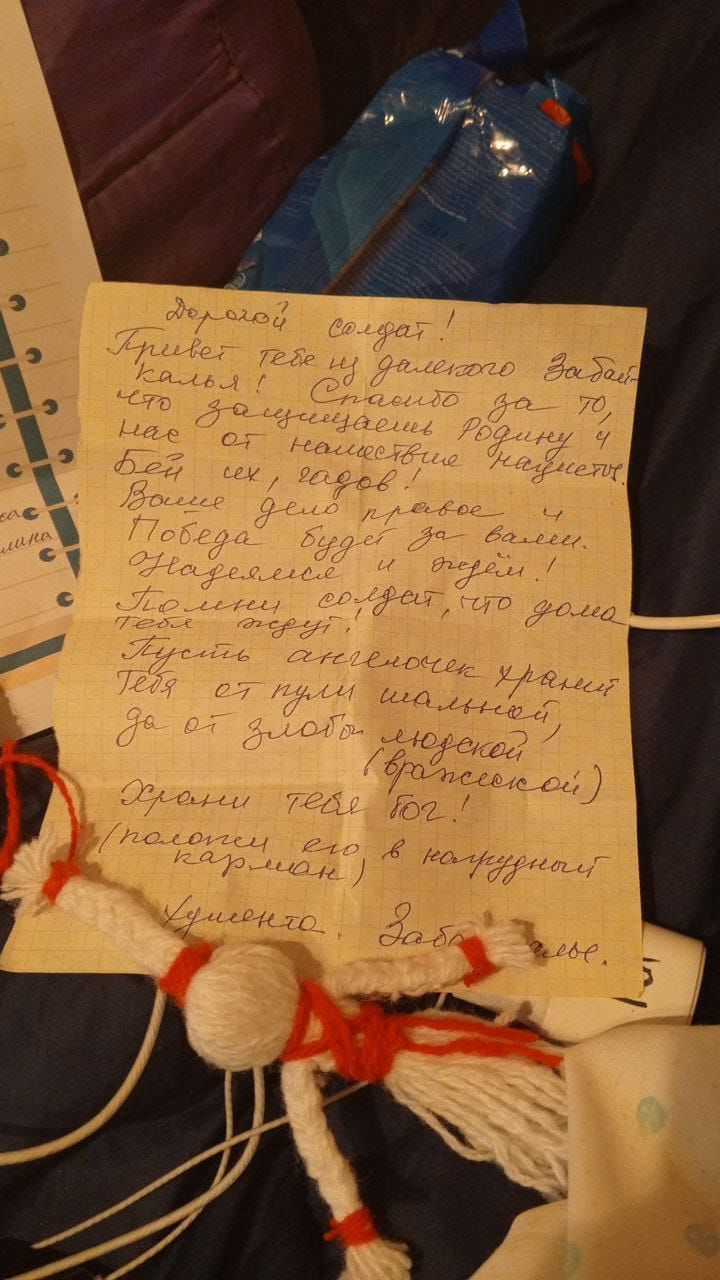 Дорогой солдат!
Привет тебе из далекого Забай-
калья! Спасибо за то,
что защищаешь Родину и
нас от нашествие нацистов.
Бей их, гадов!
Ваше дело правое и
Победа будет за вами.
Надеямся и ждём!
Помни солдат, что дома
тебя ждут!
Пусть ангелочек хранит
тебя от пули шальной,
да от злобы людской
(вражеской)
Храни тебя бог!
(положи его в нагрудный
карман)
Забайкалье.